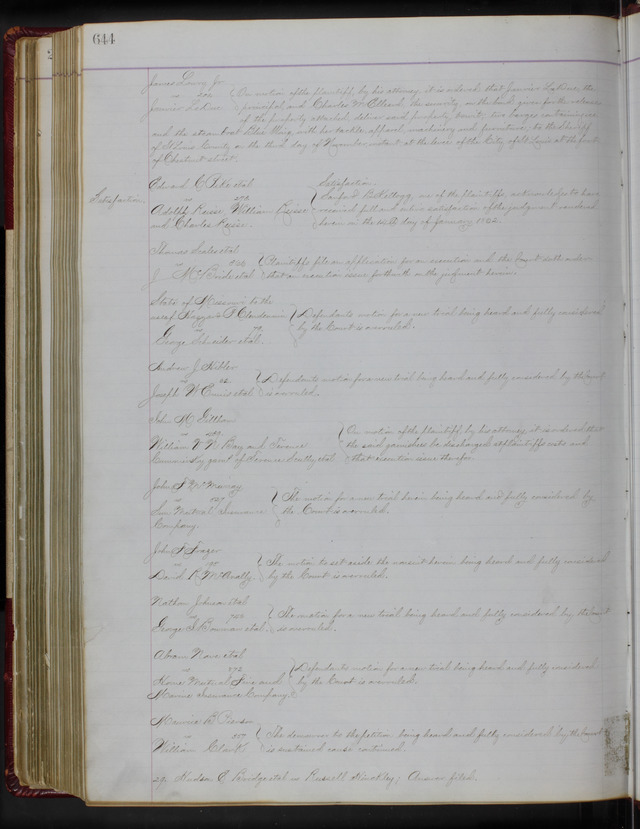 644
James Lowry Jr
vs
On motion of the plaintiff, by his attorney, it is ordered, that
principal, and Charles McClelland, the security on the bond given for the release
of the property attached, deliver said property, to wit: two barges
and the steamboat with her tackle, apparel, machinery and furniture, to the Sheriff
of St Louis County on the third day of November instant at the levee of the City of St Louis at the foot
of Chestnut street.
Satisfaction
Edward C etal
vs
Adolph Keiser William Keiser
and Charles Keiser.
Satisfaction.
Sanford B Kellogg, one of the plaintiffs, acknowledges to have
received full and entire satisfaction of the judgment rendered
herein on the 14th day of January 1862.
Thomas Scales etal
vs
J McBride etal
Plaintiffs file an application for an execution and the Court doth order
that an execution issue forthwith on the judgment herein.
State of Missouri to the
use of
vs 72
George Schneider etal.
Defendants motion for a new trial being heard and fully considered
by the Court is overruled.
Andrew J. Hibler
vs 12
Joseph W Ennis etal
Defendants motion for a new trial being heard and fully considered by the Court
is overruled.
John M Gilham
vs
William V N Bay and Terance
garnt of Terance etal
On motion of the plaintiff, by his attorney it is ordered that
the said garnishee be discharged at plaintiffs costs and
that execution issue therefor.
John F McMurray
vs
Mutual Insurance
Company.
The motion for a new trial herein being heard and fully considered by
the Court is overruled.
John F Frazer
vs
David R McAnally.
The motion to set aside the nonsuit herein being heard and fully considered
by the Court is overruled.
Nathan Johnson etal
vs
George S Bowman etal.
The motion for a new trial being heard and fully considered by the Court
is overruled.
Abram Nave etal
vs 272
Home Mutual Fire and
Marine Insurance Company.
Defendants motion for a new trial being heard and fully considered
by the Court is overruled.
Maurice B Pierson
vs 257
William Clark
The demurrer to the petition being heard and fully considered by the Court
is sustained cause continued.
29. Hudson E Bridge etal vs Russell Hinckley; Answer filed.